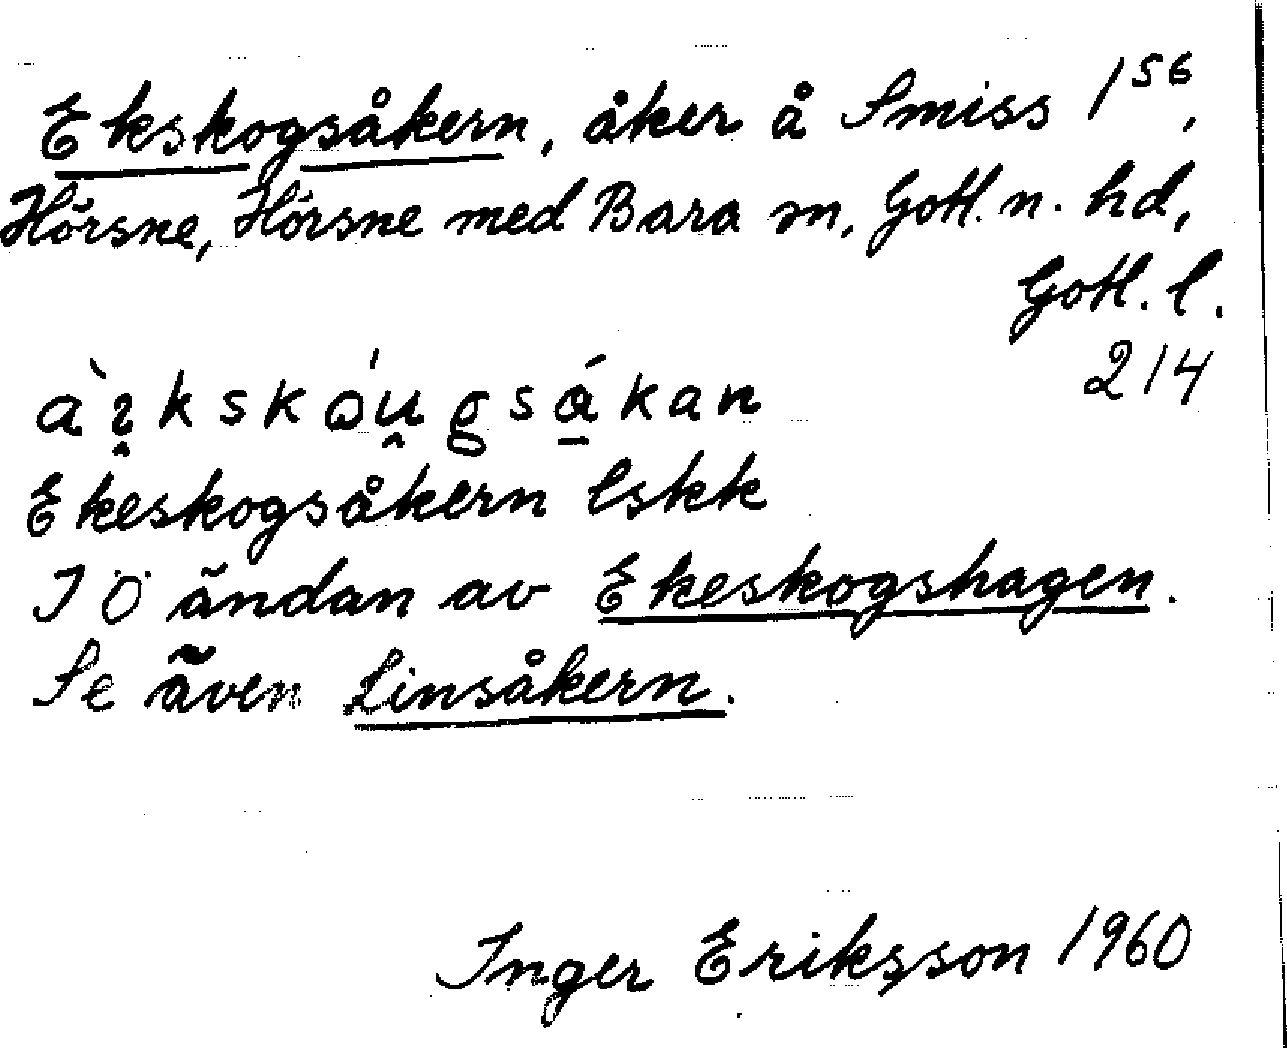 Ekskogsåkern, åker å Smiss 1⁵⁶,
Hörsne, Hörsne med Bara sn, Gotl. n. hd,
Gotl. l.
214
Ekeskogsåkern lskk
I Ö ändan av Ekeskogshagen.
Se även Linsåkern.
Inger Eriksson 1960